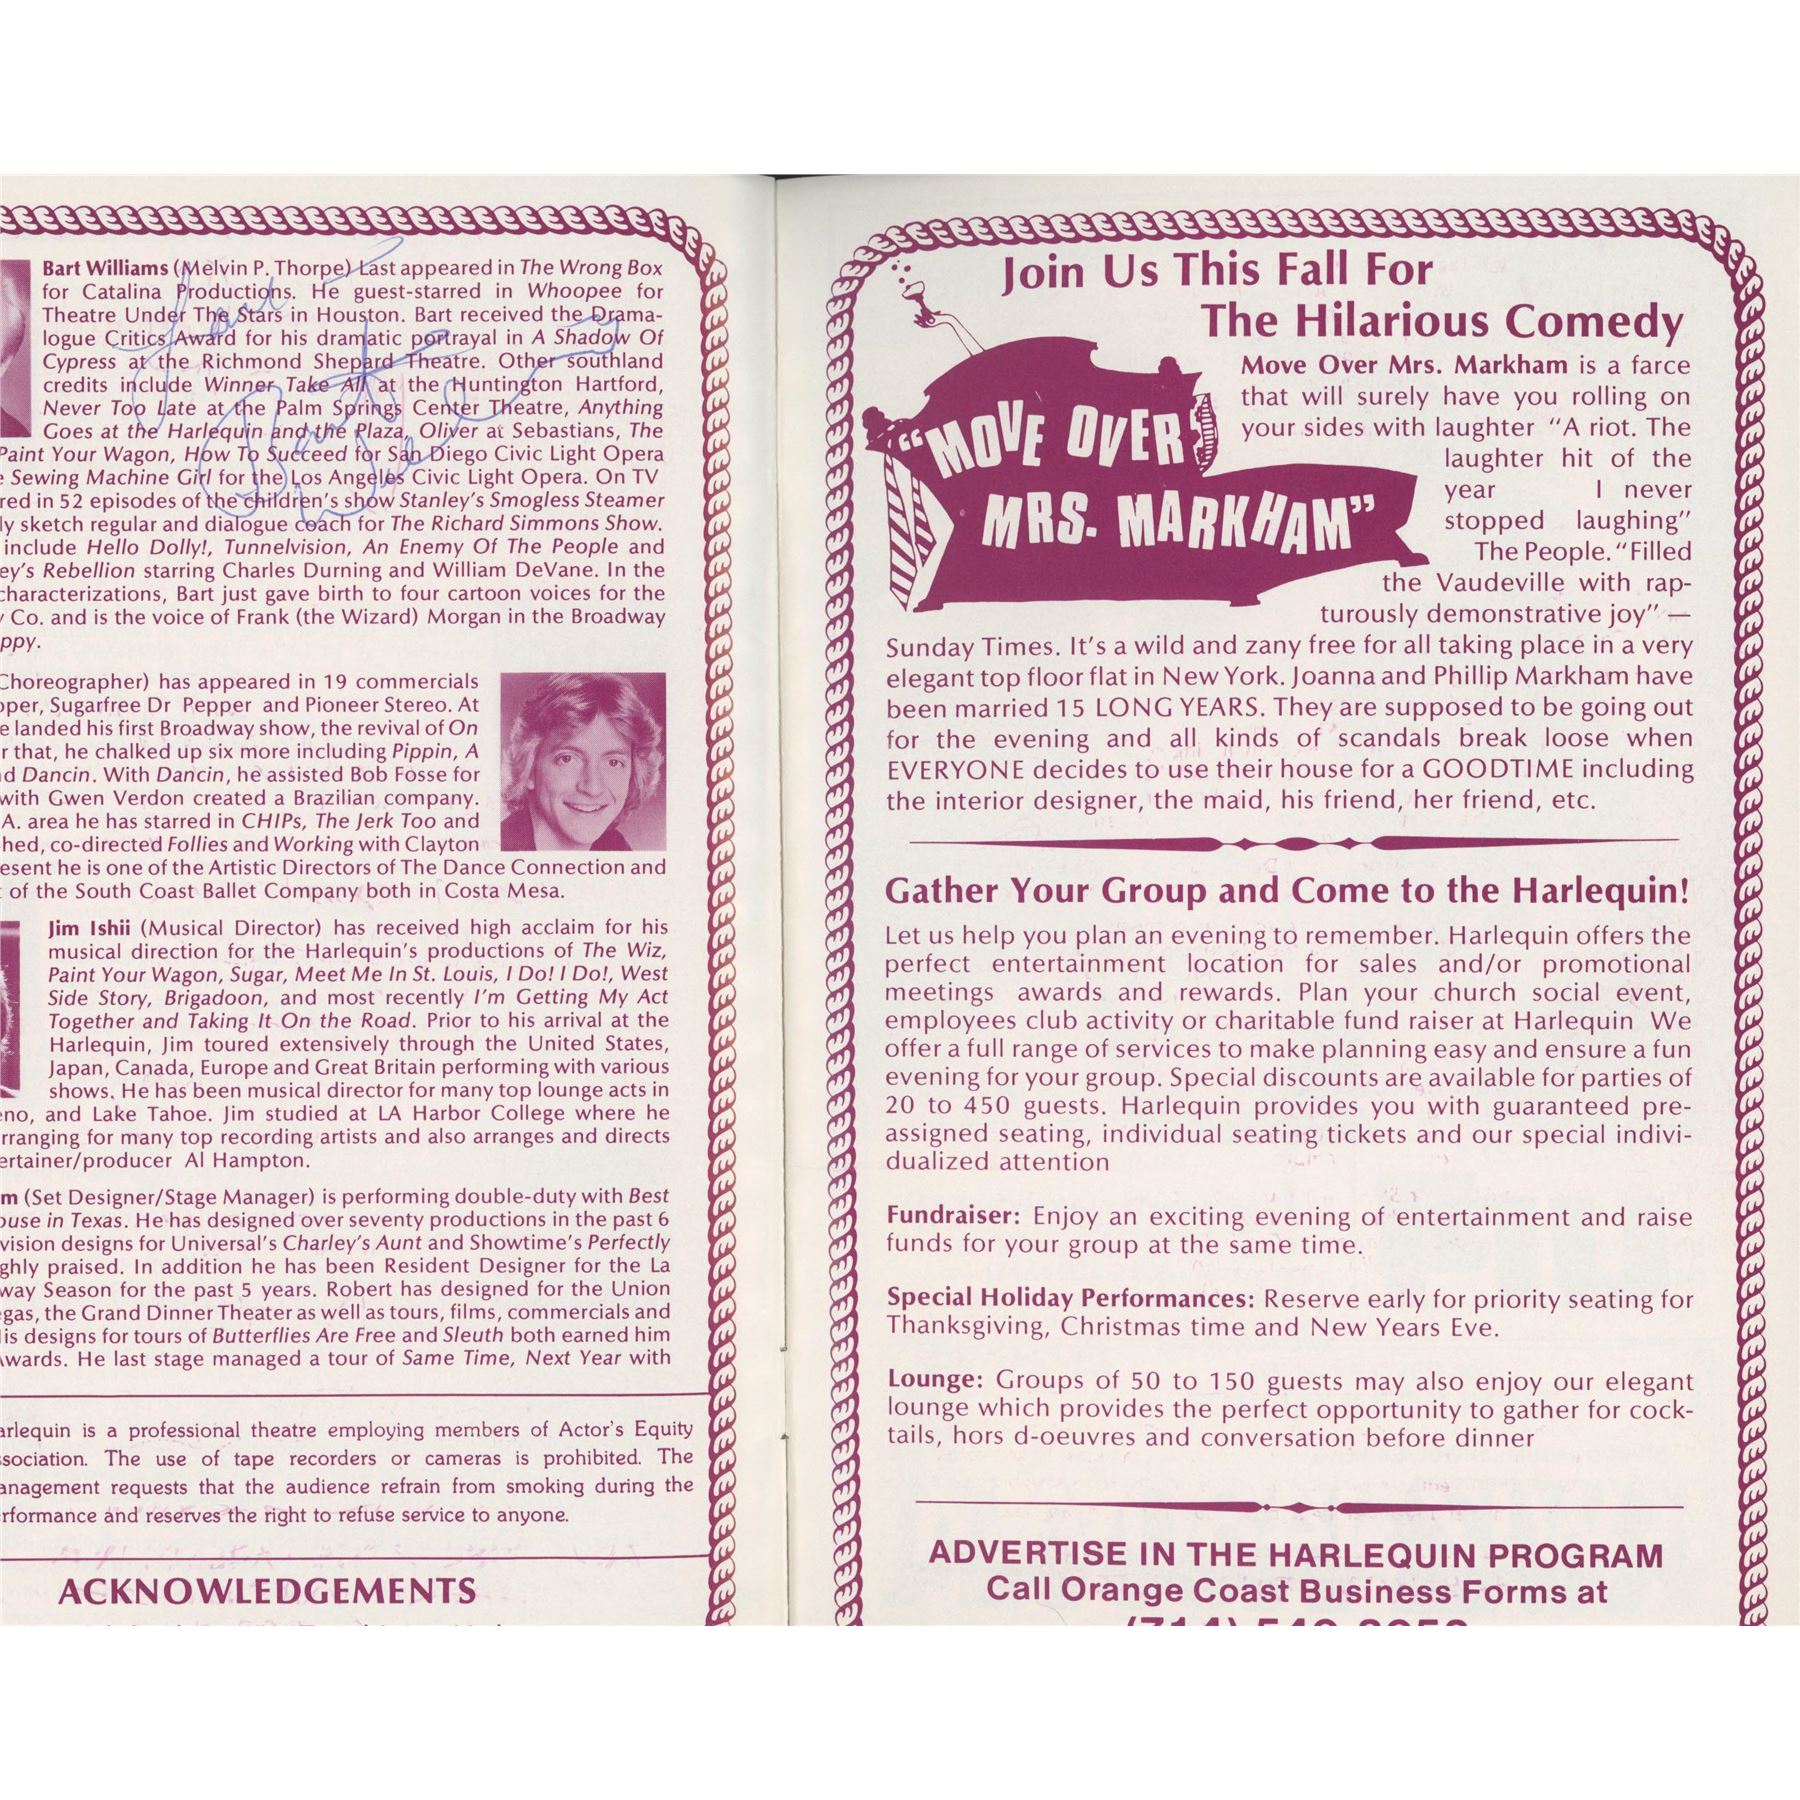 Bart Williams (Melvin P. Thorpe) Last appeared in The Wrong Box
for Catalina Productions. He guest-starred in Whoopee for
Theatre Under The Stars in Houston. Bart received the Drama-
logue Critics Award for his dramatic portrayal in A Shadow Of
Cypress at the Richmond Shepard Theatre. Other southland
credits include Winner Take All at the Huntington Hartford,
Never Too Late at the Palm Springs Center Theatre, Anything
Goes at the Harlequin and the Plaza, Oliver at Sebastians, The
Paint Your Wagon, How To Succeed for San Diego Civic Light Opera
Sewing Machine Girl for the Los Angeles Civic Light Opera. On TV
red in 52 episodes of the children's show Stanley's Smogless Steamer
ly sketch regular and dialogue coach for The Richard Simmons Show.
include Hello Dolly!, Tunnelvision, An Enemy Of The People and
ey's Rebellion starring Charles Durning and William DeVane. In the
characterizations, Bart just gave birth to four cartoon voices for the
Co. and is the voice of Frank (the Wizard) Morgan in the Broadway
ppy.
Choreographer) has appeared in 19 commercials
pper, Sugarfree Dr Pepper and Pioneer Stereo. At
e landed his first Broadway show, the revival of On
r that, he chalked up six more including Pippin, A
d Dancin. With Dancin, he assisted Bob Fosse for
with Gwen Verdon created a Brazilian company.
A. area he has starred in CHIPs, The Jerk Too and
hed, co-directed Follies and Working with Clayton
esent he is one of the Artistic Directors of The Dance Connection and
t of the South Coast Ballet Company both in Costa Mesa.
Jim Ishii (Musical Director) has received high acclaim for his
musical direction for the Harlequin's productions of The Wiz,
Paint Your Wagon, Sugar, Meet Me In St. Louis, I Do! I Do!, West
Side Story, Brigadoon, and most recently I'm Getting My Act
Together and Taking It On the Road. Prior to his arrival at the
Harlequin, Jim toured extensively through the United States,
Japan, Canada, Europe and Great Britain performing with various
shows. He has been musical director for many top lounge acts in
eno, and Lake Tahoe. Jim studied at LA Harbor College where he
rranging for many top recording artists and also arranges and directs
ertainer/producer Al Hampton.
m (Set Designer/Stage Manager) is performing double-duty with Best
ouse in Texas. He has designed over seventy productions in the past 6
vision designs for Universal's Charley's Aunt and Showtime's Perfectly
ghly praised. In addition he has been Resident Designer for the La
way Season for the past 5 years. Robert has designed for the Union
egas, the Grand Dinner Theater as well as tours, films, commercials and
is designs for tours of Butterflies Are Free and Sleuth both earned him
wards. He last stage managed a tour of Same Time, Next Year with
arlequin is a professional theatre employing members of Actor's Equity
ssociation. The use of tape recorders or cameras is prohibited. The
anagement requests that the audience refrain from smoking during the
rformance and reserves the right to refuse service to anyone.
ACKNOWLEDGEMENTS
Join Us This Fall For
The Hilarious Comedy
"MOVE OVER
MRS. MARKHAM"
Move Over Mrs. Markham is a farce
that will surely have you rolling on
your sides with laughter "A riot. The
laughter hit of the
year I never
stopped laughing"
The People. "Filled
the Vaudeville with rap-
turously demonstrative joy" —
Sunday Times. It's a wild and zany free for all taking place in a very
elegant top floor flat in New York. Joanna and Phillip Markham have
been married 15 LONG YEARS. They are supposed to be going out
for the evening and all kinds of scandals break loose when
EVERYONE decides to use their house for a GOODTIME including
the interior designer, the maid, his friend, her friend, etc.
Gather Your Group and Come to the Harlequin!
Let us help you plan an evening to remember. Harlequin offers the
perfect entertainment location for sales and/or promotional
meetings awards and rewards. Plan your church social event,
employees club activity or charitable fund raiser at Harlequin We
offer a full range of services to make planning easy and ensure a fun
evening for your group. Special discounts are available for parties of
20 to 450 guests. Harlequin provides you with guaranteed pre-
assigned seating, individual seating tickets and our special indivi-
dualized attention
Fundraiser: Enjoy an exciting evening of entertainment and raise
funds for your group at the same time.
Special Holiday Performances: Reserve early for priority seating for
Thanksgiving, Christmas time and New Years Eve.
Lounge: Groups of 50 to 150 guests may also enjoy our elegant
lounge which provides the perfect opportunity to gather for cock-
tails, hors d-oeuvres and conversation before dinner
ADVERTISE IN THE HARLEQUIN PROGRAM
Call Orange Coast Business Forms at